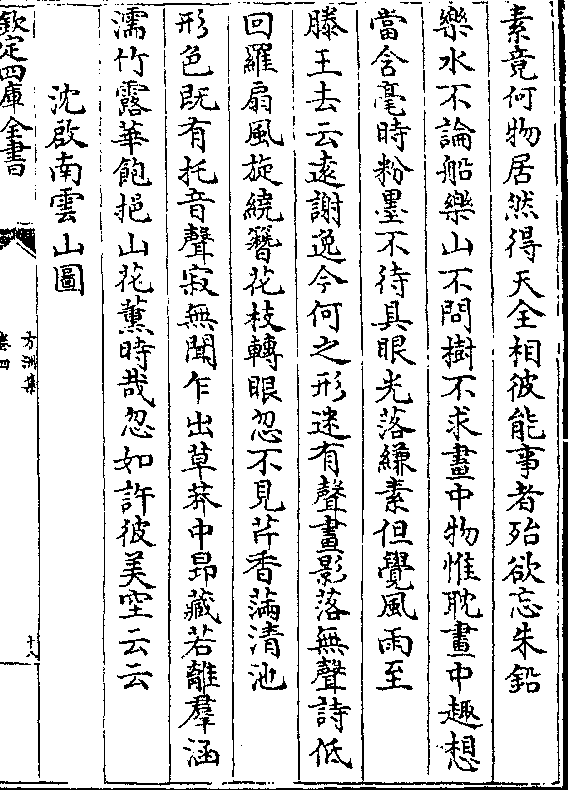 素竟何物居然得天全相彼能事者殆欲忘朱鉛
樂水不論船樂山不問樹不求畫中物惟耽畫中趣想
當含毫時粉墨不待具眼光落縑素但覺風雨至
滕王去云遠謝逸今何之形迷有聲畫影落無聲詩低
回羅扇風旋繞簪花枝轉眼忽不見芹香滿清池
形色既有托音聲寂無聞乍出草莽中昂藏若離羣涵
濡竹露華飽挹山花薰時哉忽如許彼美空云云
沈啟南雲山圖
欽定四庫全書
方洲集
卷四
十八